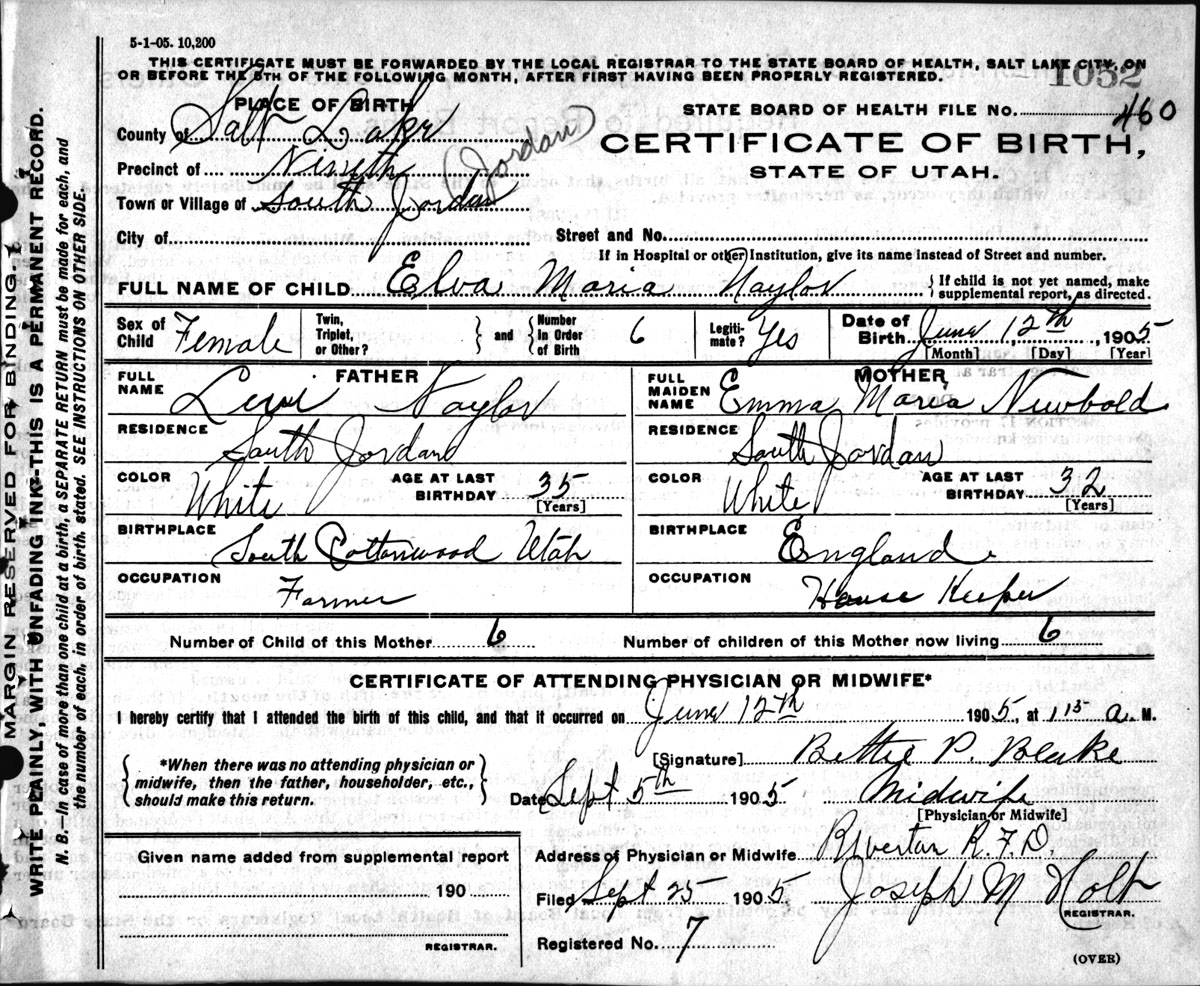 5-1-05. 10,200
THIS CERTIFICATE MUST BE FORWARDED BY THE LOCAL REGISTRAR TO THE STATE BOARD OF HEALTH, SALT LAKE CITY, ON
OR BEFORE THE 5TH OF THE FOLLOWING MONTH, AFTER FIRST HAVING BEEN PROPERLY REGISTERED.
1052
PLACE OF BIRTH
STATE BOARD OF HEALTH FILE No. 460
County of Salt Lake
CERTIFICATE OF BIRTH,
Precinct of Nineth (Jordan)
STATE OF UTAH.
Town or Village of South Jordan
City of Street and No.
If in Hospital or other Institution, give its name instead of Street and number.
FULL NAME OF CHILD Elva Maria Naylor { If child is not yet named, make supplemental report, as directed.
Sex of Child Female Twin, Triplet, or Other? } and { Number in Order of Birth 6 Legiti-mate? Yes Date of Birth June, 12th, 1905
[Month] [Day] [Year]
FATHER MOTHER
FULL NAME Levi Naylor FULL MAIDEN NAME Emma Maria Newbold
RESIDENCE South Jordan RESIDENCE South Jordan
COLOR White AGE AT LAST BIRTHDAY 35 [Years] COLOR White AGE AT LAST BIRTHDAY 32 [Years]
BIRTHPLACE South Cottonwood Utah BIRTHPLACE England
OCCUPATION Farmer OCCUPATION House Keeper
Number of Child of this Mother 6 Number of children of this Mother now living 6
CERTIFICATE OF ATTENDING PHYSICIAN OR MIDWIFE*
I hereby certify that I attended the birth of this child, and that it occurred on June 12th 1905, at 1 15 a. M.
{ *When there was no attending physician or midwife, then the father, householder, etc., should make this return. }
[Signature] Bettie P. Blake
Date Sept 5th 1905 Midwife
[Physician or Midwife]
Given name added from supplemental report
Address of Physician or Midwife Riverton R.F.D.
190
Filed Sept 25 1905. Joseph M Holt
REGISTRAR.
REGISTRAR.
Registered No. 7
(OVER)
MARGIN RESERVED FOR BINDING.
WRITE PLAINLY, WITH UNFADING INK--THIS IS A PERMANENT RECORD.
N. B.—In case of more than one child at a birth, a SEPARATE RETURN must be made for each, and
the number of each, in order of birth, stated. SEE INSTRUCTIONS ON OTHER SIDE.